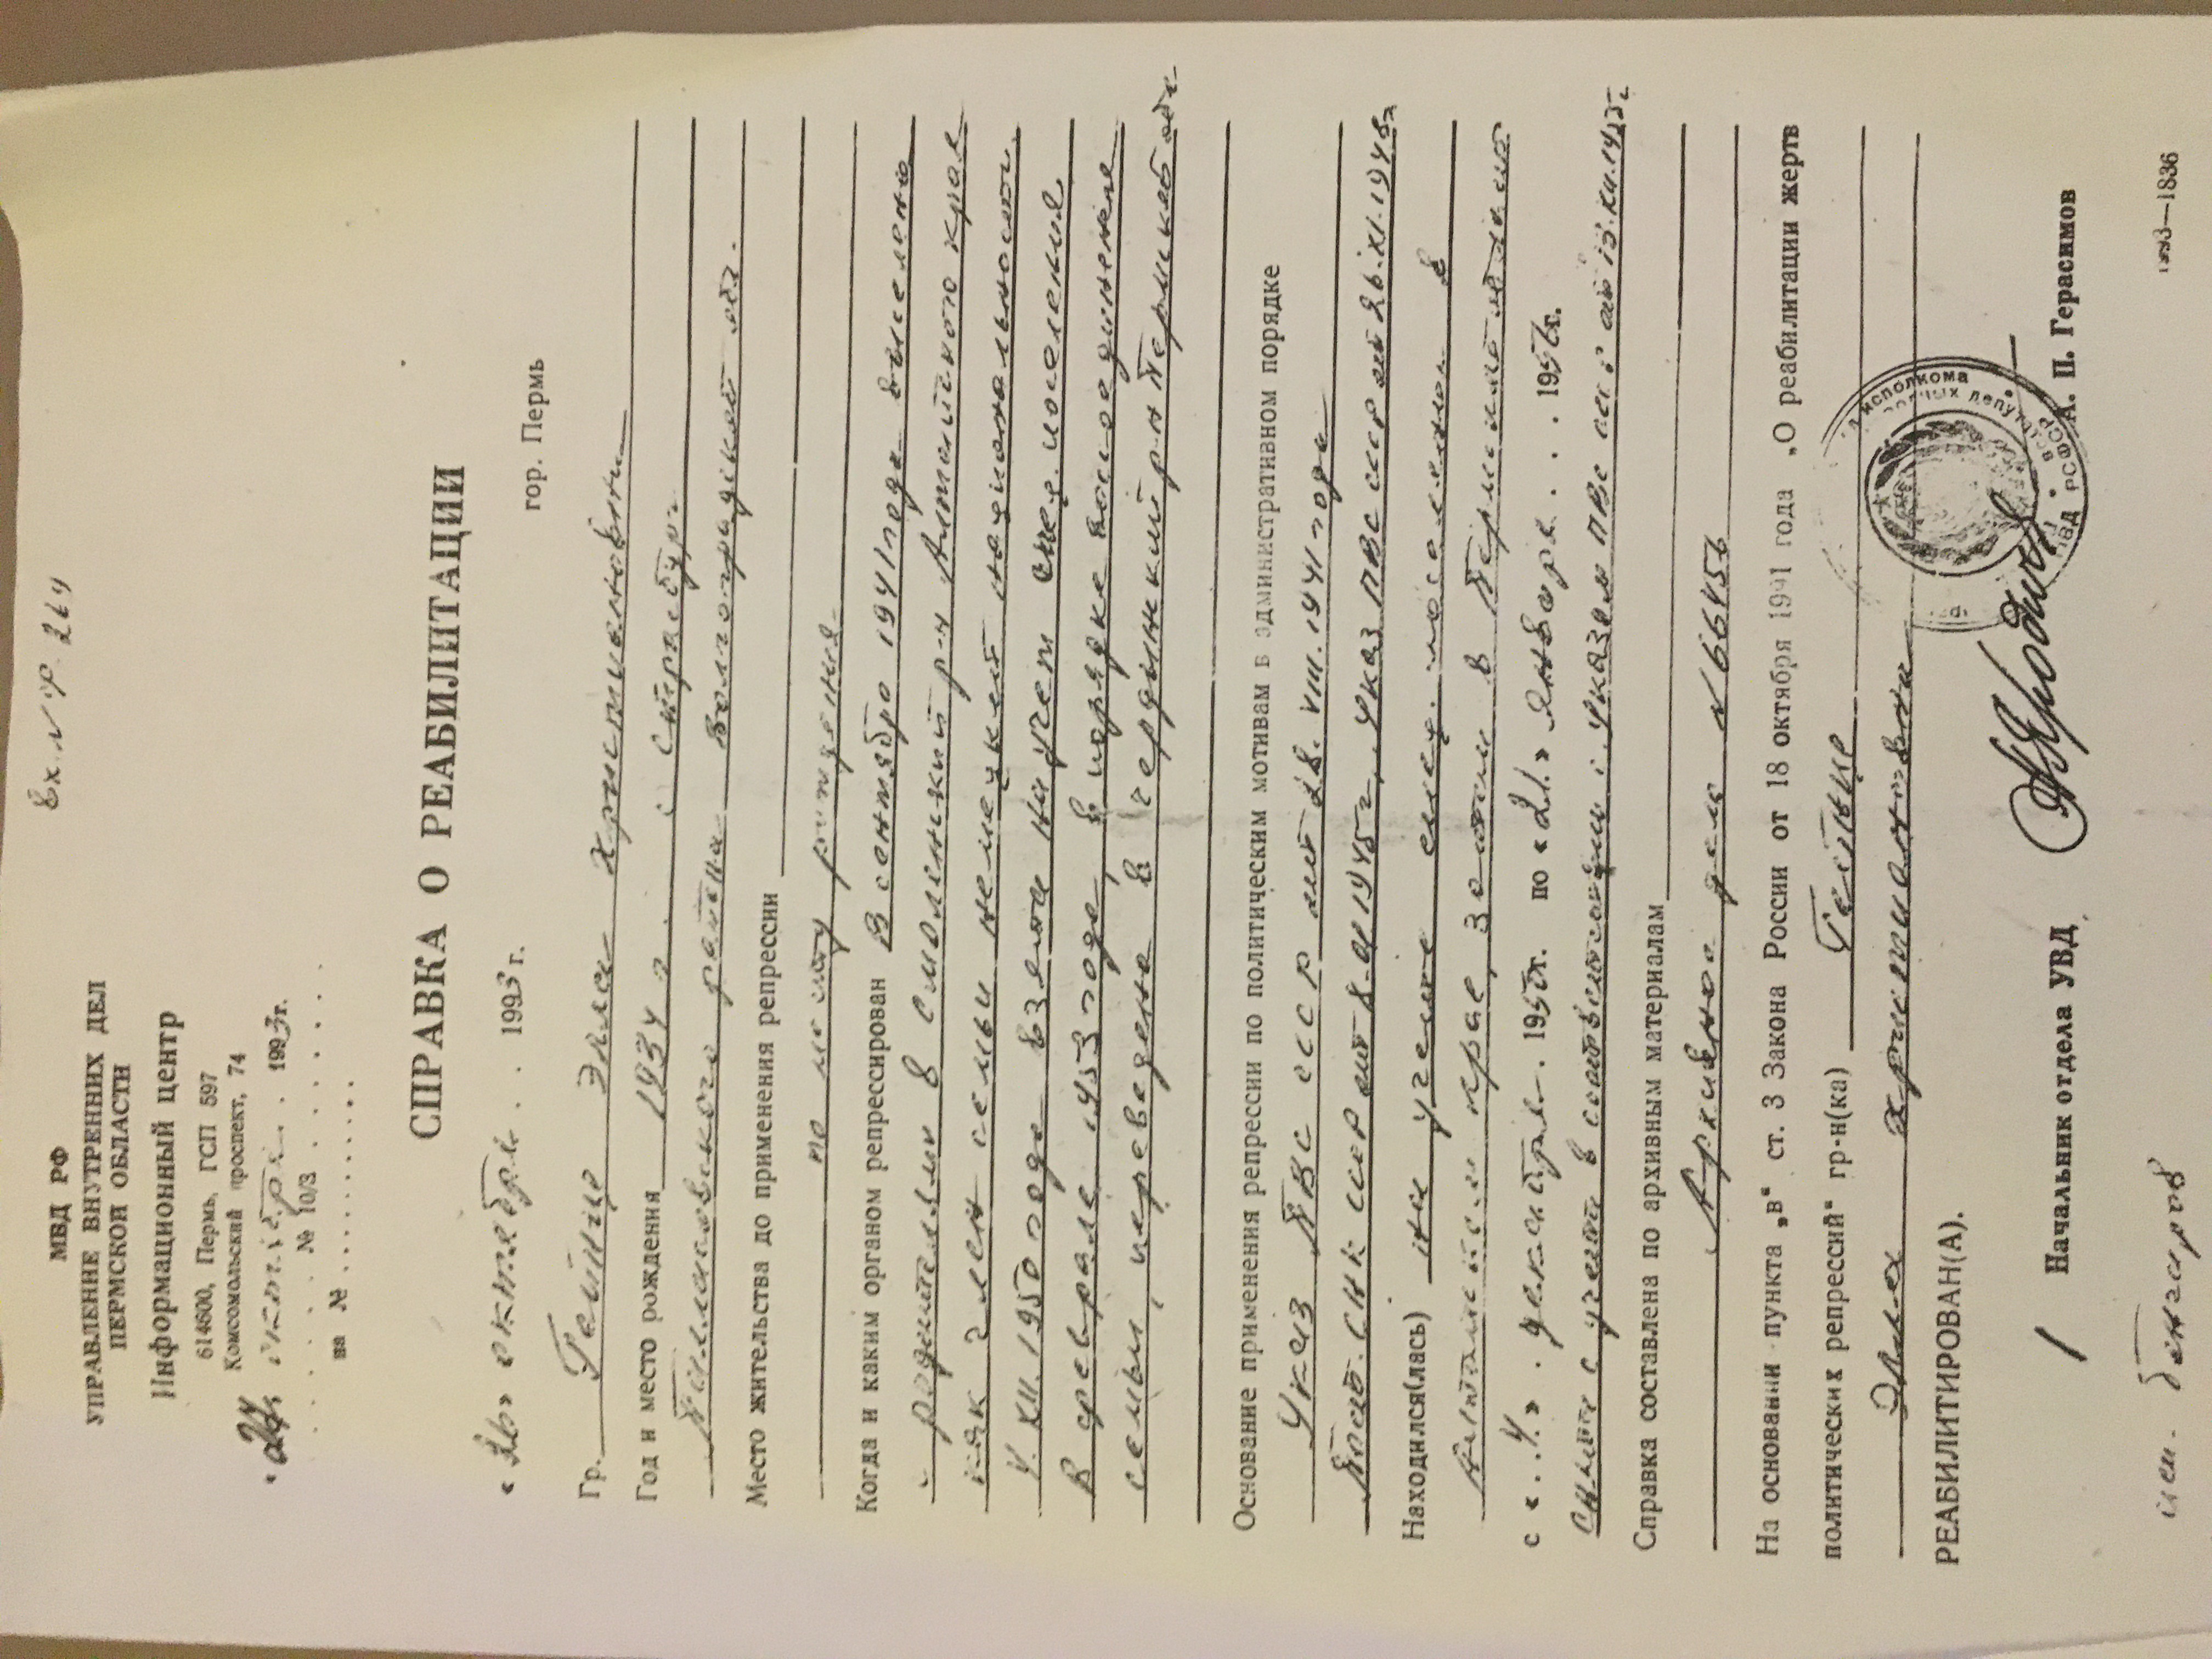 Вх. № р. 264
МВД РФ
УПРАВЛЕНИЕ ВНУТРЕННИХ ДЕЛ
ПЕРМСКОЙ ОБЛАСТИ
Информационный центр
614600, Пермь, ГСП 597
Комсомольский проспект, 74
октября . 1993г.
. . . . . № 10/3 . . . . . . . .
на № . . . . . . . . . .
СПРАВКА О РЕАБИЛИТАЦИИ
«26» октября . . 1993г. гор. Пермь
Гр. Гейнце Элла Христиановна
Год и место рождения 1934 г. с. Страсбург
Палласовского района Волгоградской обл.
Место жительства до применения репрессии
по месту рождения
Когда и каким органом репрессирован В сентябре 1941 года выселена
с родителями в Смоленский р-н Алтайского края
как член семьи немецкой национальности.
У.XII.1950 года взята на учет спец. поселения
В феврале 1953 года в порядке воссоединения
семьи переведена в Чердынский р-н Пермской обл.
Основание применения репрессии по политическим мотивам в административном порядке
Указ ПВС СССР от 28.VIII.1941 года
Пост. СНК СССР от 8.01.1945г., Указ ПВС СССР от 26.XI.1948г
Находился(лась) на учете спец. поселения в
Алтайском крае, затем в Пермской области
с «. . 4. » . декабря . . 1950г. по «21» января . . . . 1956г.
снята с учета в соответствии с Указом ПВС СССР от 13.XII.1955г
Справка составлена по архивным материалам
Архивное дело № 66456
На основании пункта „в“ ст. 3 Закона России от 18 октября 1991 года „О реабилитации жертв
политических репрессий“ гр-н(ка) Гейнце
Элла Христиановна
РЕАБИЛИТИРОВАН(А).
исполкома депутатов УВД РСФСР
Начальник отдела УВД А. П. Герасимов
исп. Бенгардт
1993—1836